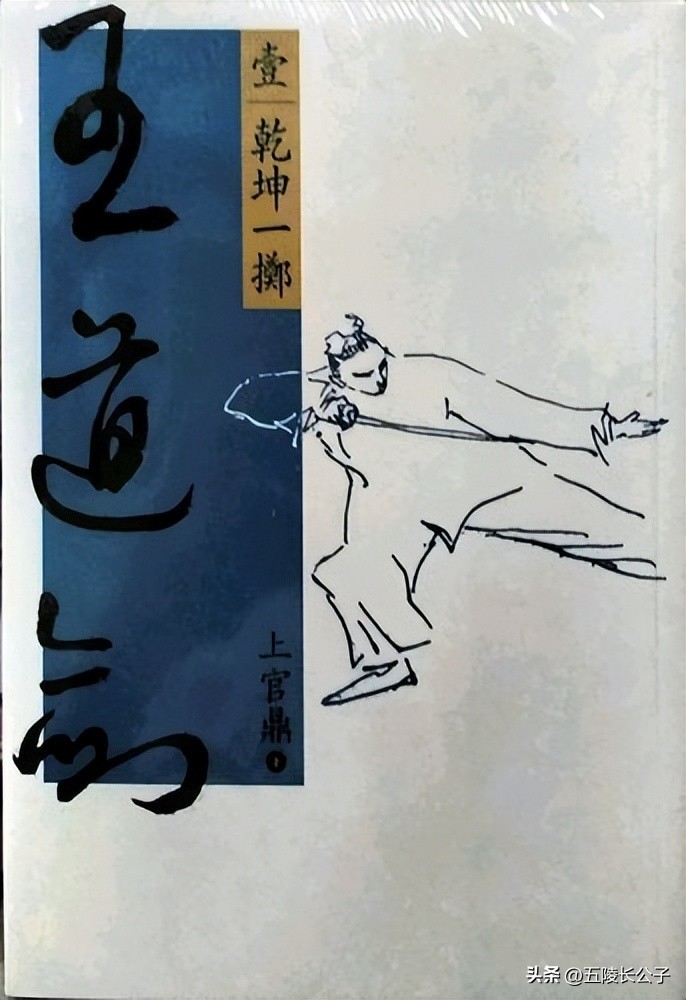 王道劍
壹 乾坤一擲
上官鼎 著
头条 @五陵长公子